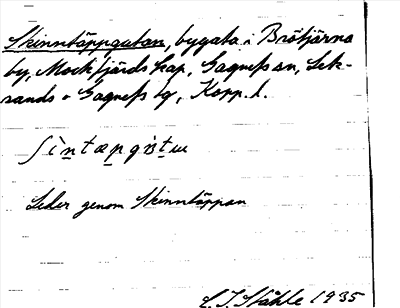 Skinntäppgatan, bygata i Brötjärna
by, Mockfjärds kap, Gagnefs sn, Lek-
sands o Gagnefs tg, Kopp. l.
Leder genom Skinntäppan
C. I. Ståhle 1935